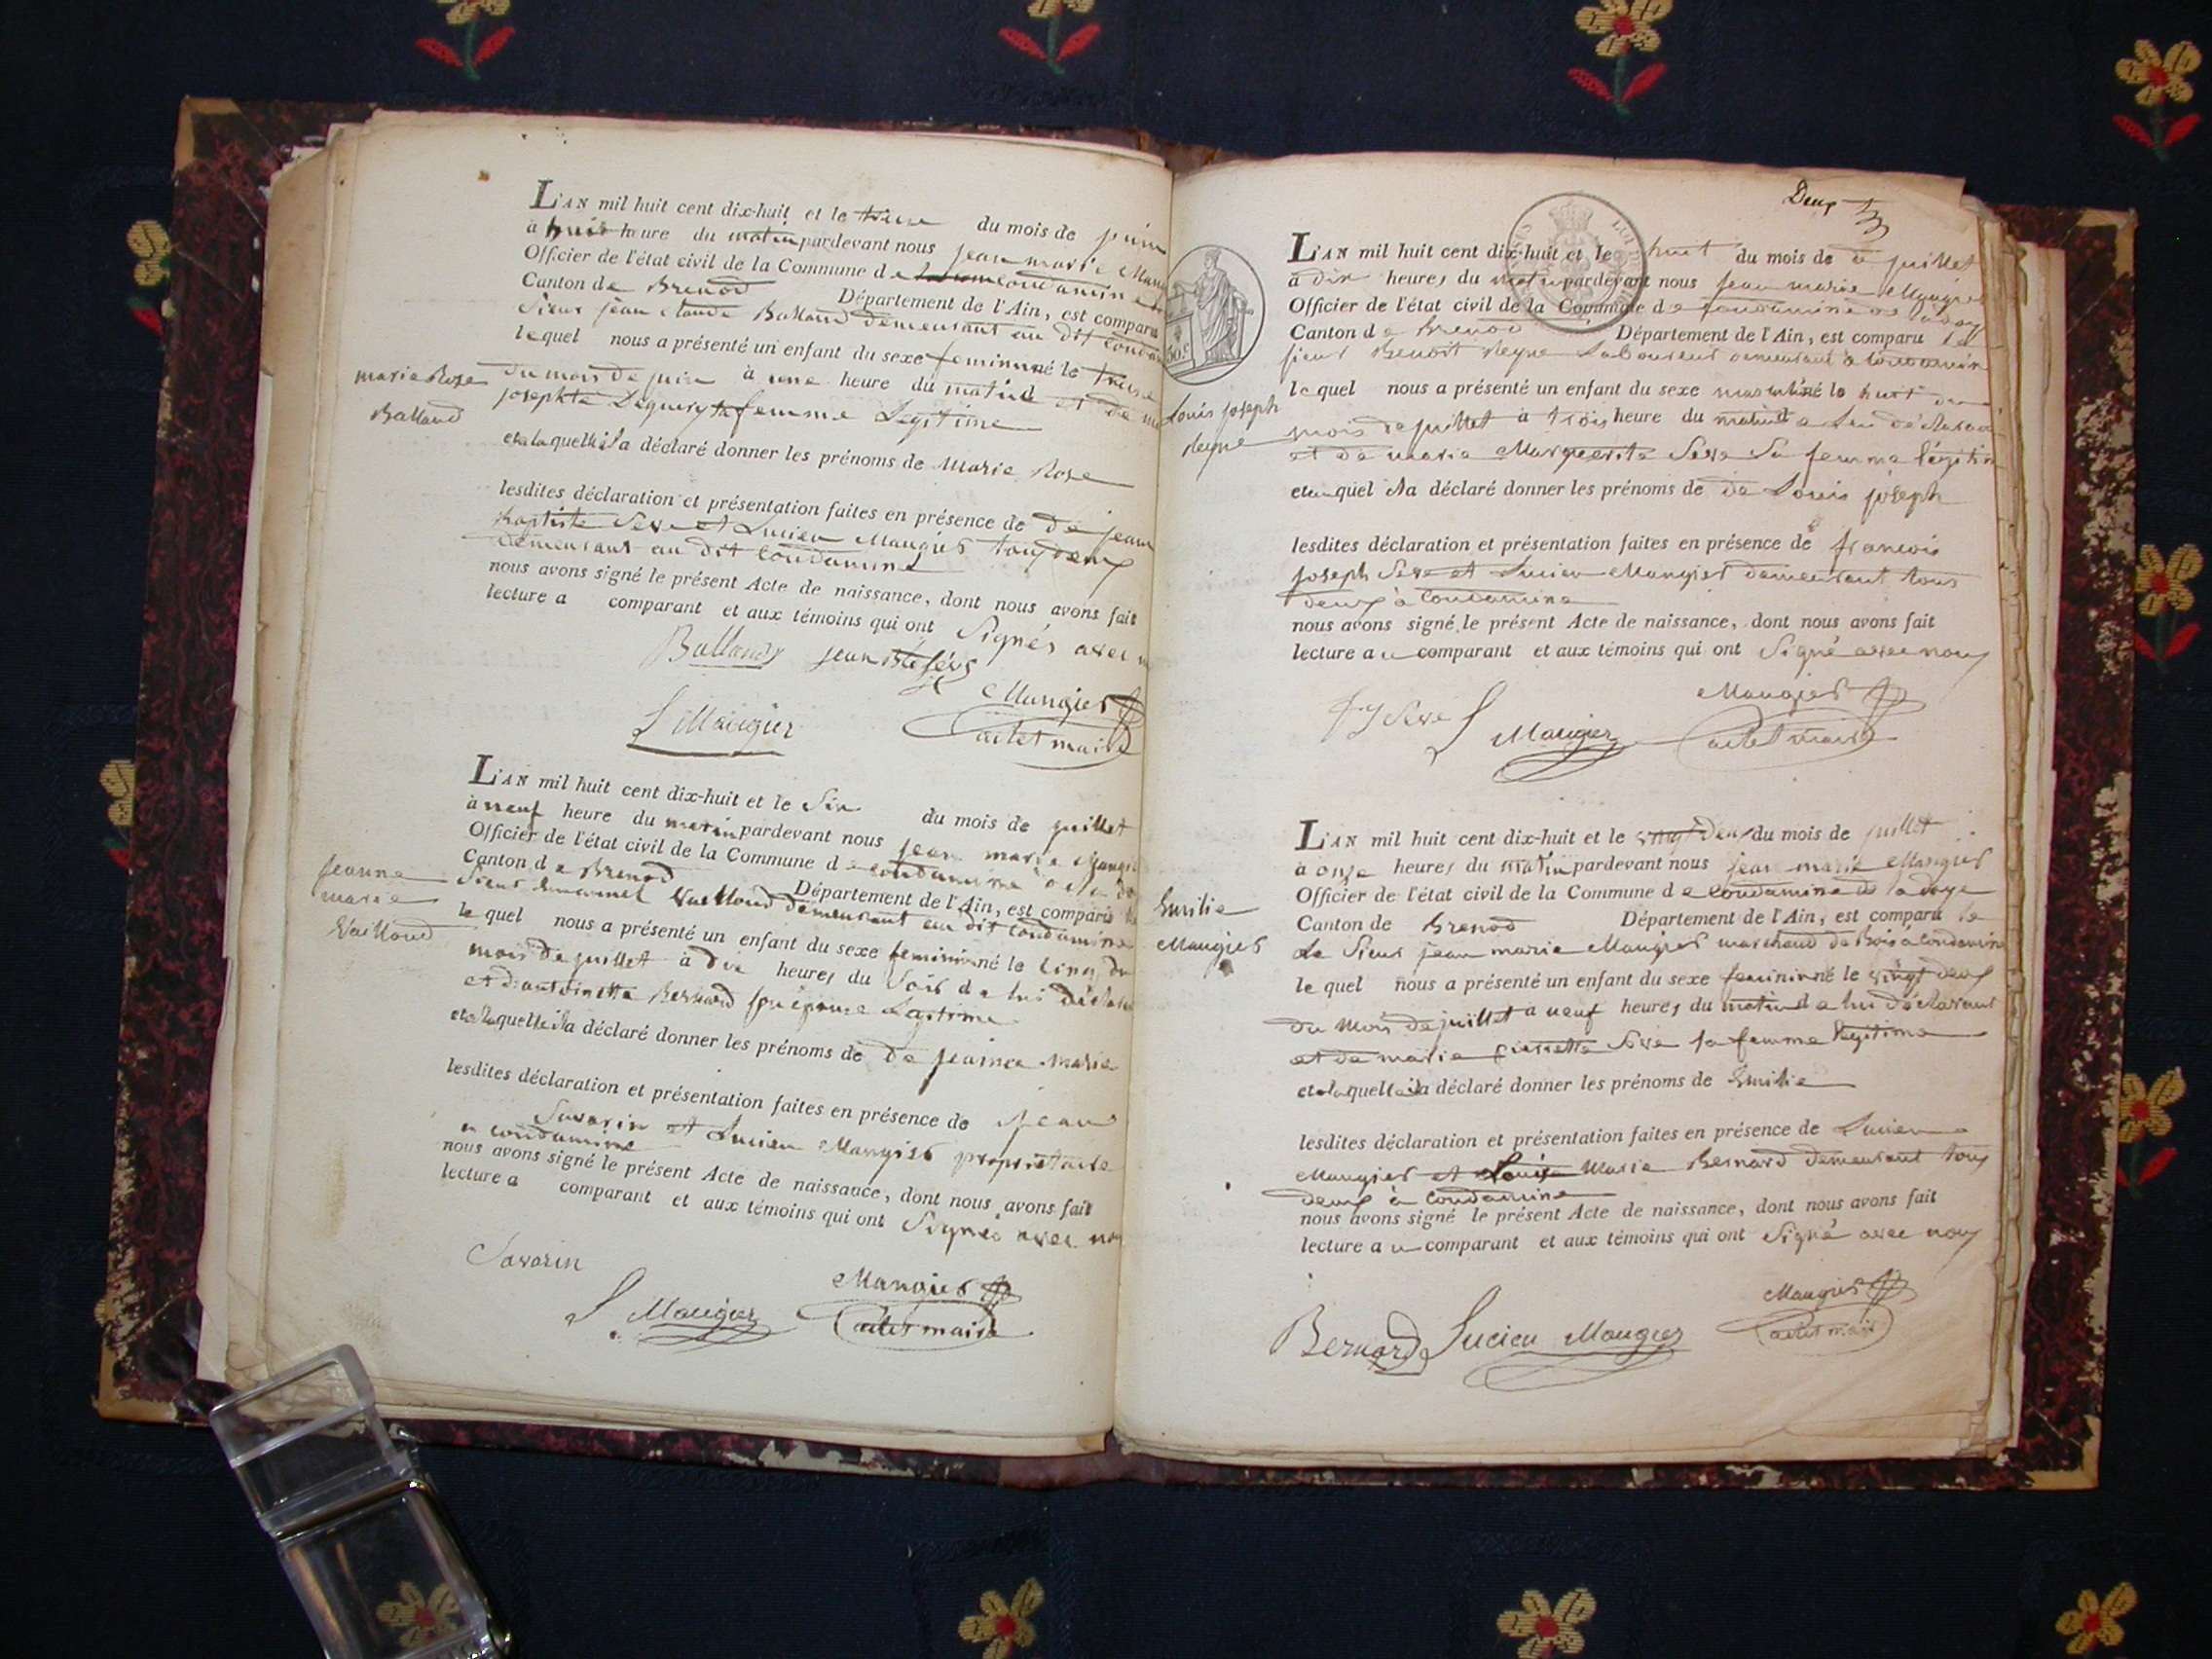 L'AN mil huit cent dix-huit et le treize du mois de juin
à huit heure du matin pardevant nous jean marie Maug
Officier de l'état civil de la Commune de Condamine
Canton de Brenod Département de l'Ain, est comparu
Sieur jean Claude Balland demeurant au dit Conda
lequel nous a présenté un enfant du sexe feminin né le treize
marie Rose
Balland
du mois de juin à une heure du matin et de
josephte femme Legitime
et a laquelle il a déclaré donner les prénoms de Marie Rose
lesdites déclaration et présentation faites en présence de de jean
baptiste Seve et Lucien Maugier tous deux
demeurant au dit Condamine
nous avons signé le présent Acte de naissance, dont nous avons fait
lecture a comparant et aux témoins qui ont Signés avec n
Balland jean Bte Seve
L Maugier
Maugier
adet maire
L'AN mil huit cent dix-huit et le Six du mois de juillet
à neuf heure du matin pardevant nous jean marie Maugi
Officier de l'état civil de la Commune de Condamine de la do
Canton de Brenod Département de l'Ain, est comparu le
Jeanne
marie
Vailloud
Sieur Emanuel Vuilloud demeurant au dit Condamine
le quel nous a présenté un enfant du sexe feminin né le Cinq du
mois de juillet à dix heures du Soir de lui déclara
et d'antoinette Bernard son épouse Legitime
et a laquelle il a déclaré donner les prénoms de de jeanne marie
lesdites déclaration et présentation faites en présence de jean
Savarin et Lucien Maugier propriétaire
a condamine
nous avons signé le présent Acte de naissance, dont nous avons fait
lecture a comparant et aux témoins qui ont Signés avec nou
Savarin
L Maugier
Maugier
adet maire
Deux
L'AN mil huit cent dix-huit et le huit du mois de juillet
à dix heures du matin pardevant nous jean marie Maugier
Officier de l'état civil de la Commune de Condamine de la doy
Canton de Brenod Département de l'Ain, est comparu le
sieur Benoit Reyne Laboureur demeurant à Condamin
50 c
le quel nous a présenté un enfant du sexe masculin né le huit du
Louis joseph
Reyne
mois de juillet à trois heure du matin de lui déclarant
et de marie Marguerite Seve Sa femme légitim
et auquel il a déclaré donner les prénoms de de Louis joseph
lesdites déclaration et présentation faites en présence de francois
joseph Seve et Lucien Maugier demeurant tous
deux à Condamine
nous avons signé le présent Acte de naissance, dont nous avons fait
lecture a u comparant et aux témoins qui ont Signé avec nous
f j Seve L Maugier
Maugier
adet maire
L'AN mil huit cent dix-huit et le vingt Deux du mois de juillet
à onze heures du matin pardevant nous jean marie Maugier
Officier de l'état civil de la Commune de Condamine de la doye
Emilie
Maugier
Canton de Brenod Département de l'Ain, est comparu le
Le Sieur jean marie Maugier marchand de Bois à Condamine
le quel nous a présenté un enfant du sexe feminin né le vingt deux
du Mois de juillet à neuf heures du matin de lui déclarant
et de marie pierrette Seve sa femme légitime
et a laquelle il a déclaré donner les prénoms de Emilie
lesdites déclaration et présentation faites en présence de Lucien
Maugier et Louise Marie Bernard demeurant tous
deux à Condamine
nous avons signé le présent Acte de naissance, dont nous avons fait
lecture a u comparant et aux témoins qui ont Signé avec nous
Bernard Lucien Maugier
Maugier
adet maire